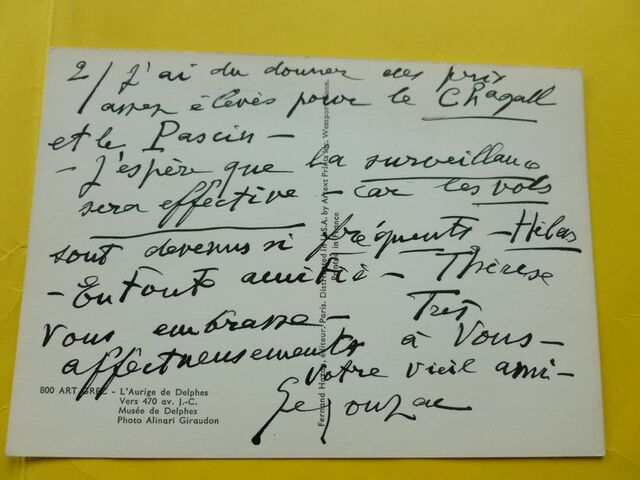 2/ J'ai du donner des prix
assez élevés pour le Chagall
et le Pascin –
– J'espère que la surveillance
sera effective – car les vols
sont devenus si fréquents – Hélas
– En toute amitié – Thérèse
vous embrasse – Très
affectueusement à Vous –
Votre vieil ami –
800 ART GREC - L'Aurige de Delphes
Vers 470 av. J.-C.
Musée de Delphes
Photo Alinari Giraudon
Fernand Hazan, éditeur, Paris. Distributed in U.S.A. by Artext Prints Inc. Westport Conn.
Printed in France